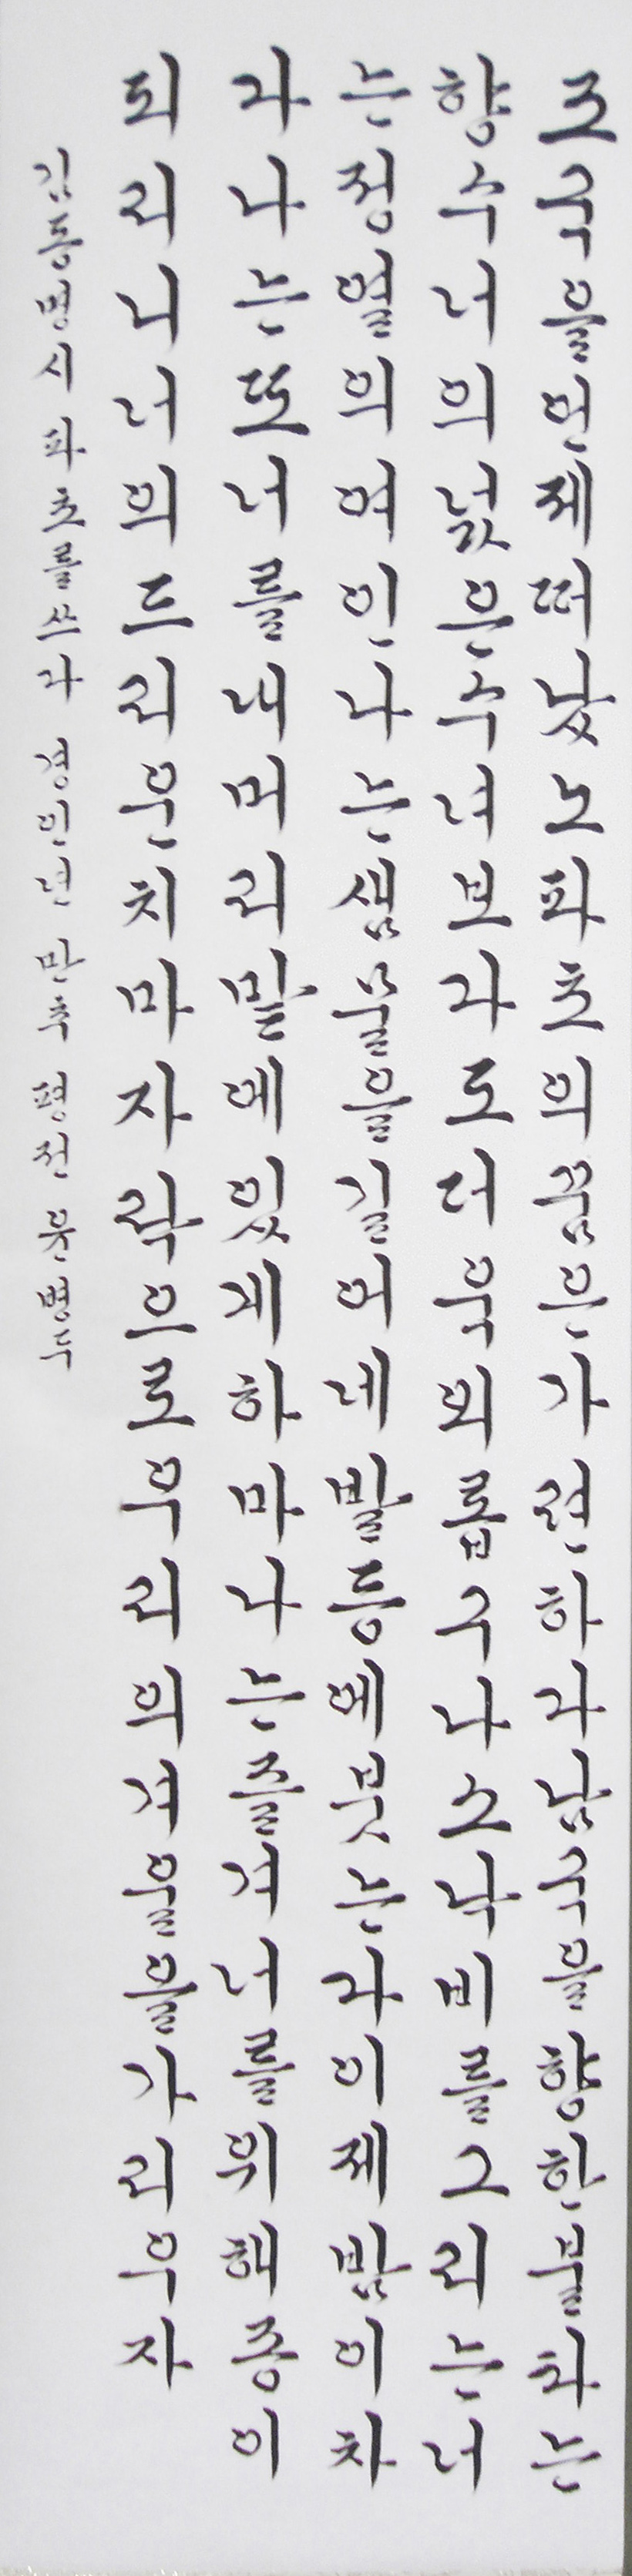 조국을언제떠났노파초의꿈은가련하다남국을향한불타는
향수너의넋은수녀보다도더욱외롭구나소낙비를그리는너
는정열의여인나는샘물을길어네발등에붓는다이제밤이차
다나는또너를내머리맡에있게하마나는즐겨너를위해종이
되리니너의드리운치마자락으로우리의겨울을가리우자
김동명시 파초를쓰다 경인년 만추 평전 윤병두